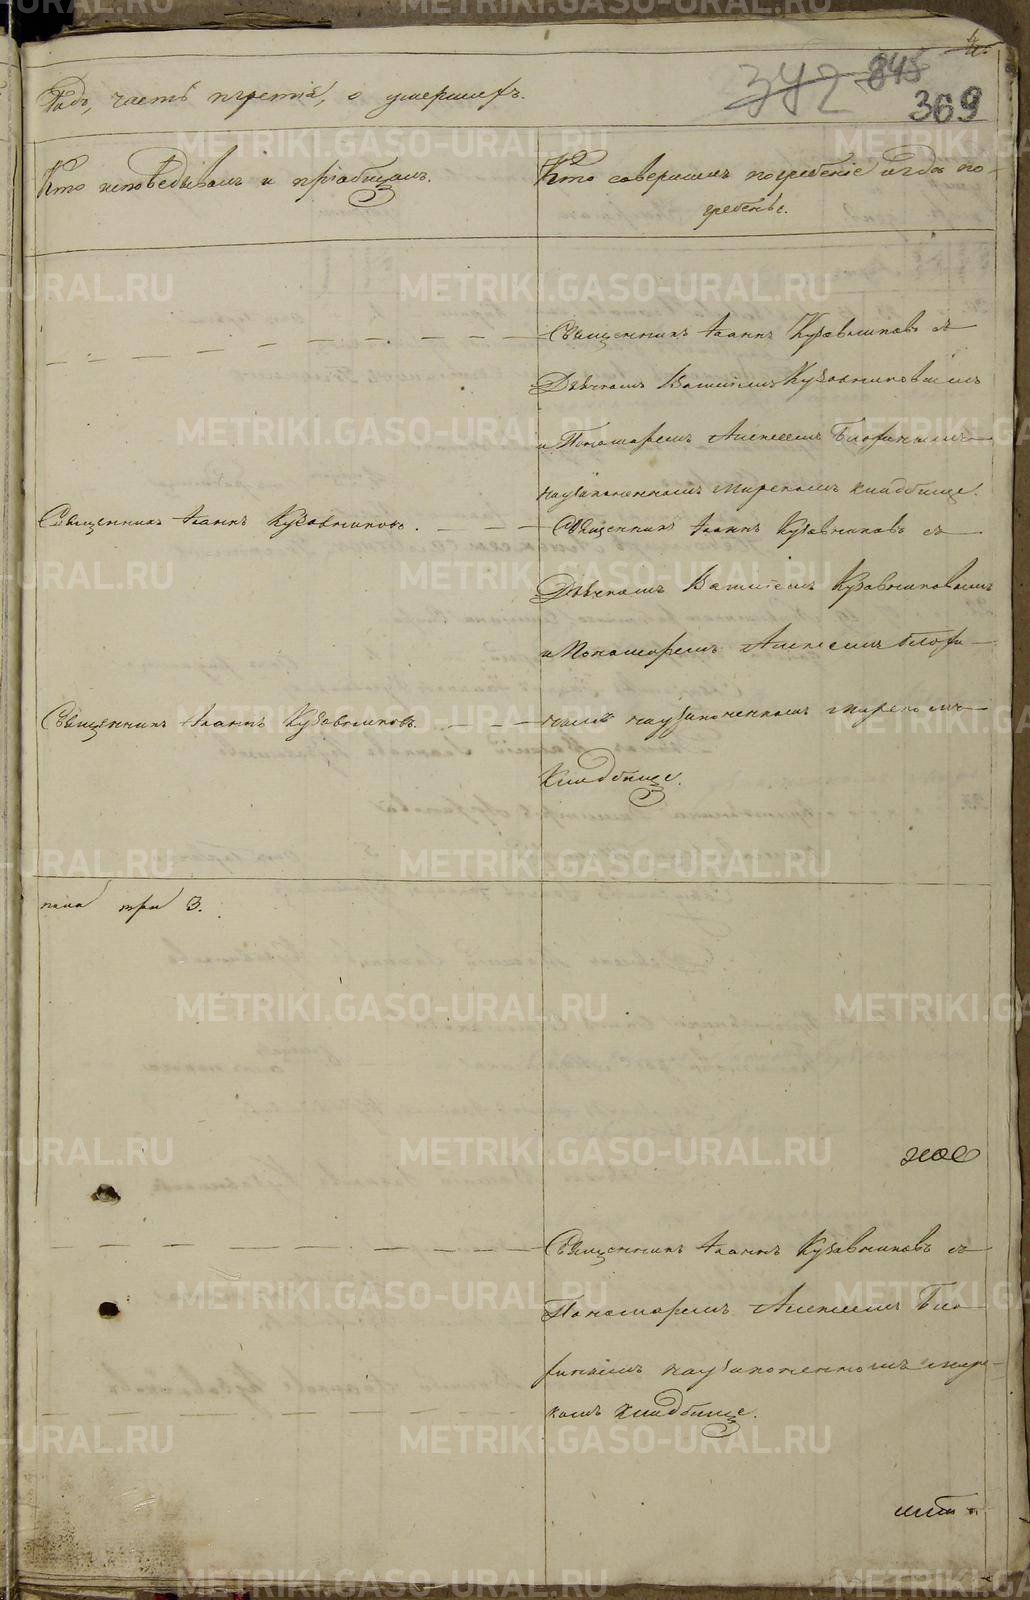 342 845
369
Года, часть третія, о умершихъ.
Кто исповѣдывалъ и пріобщалъ.
Кто совершалъ погребеніе и гдѣ по-
гребенъ.
Священникъ Іоаннъ Кузовниковъ съ
Дьячкомъ Василіемъ Кузовниковымъ
и Пономаремъ Алексѣемъ
на узаконенномъ мирскомъ кладбище.
Священникъ Іоаннъ Кузовниковъ.
Священникъ Іоаннъ Кузовниковъ съ
Дьячкомъ Василіемъ Кузовниковымъ
и Пономаремъ Алексѣемъ
Священникъ Іоаннъ Кузовниковъ.
на узаконенномъ мирскомъ
кладбище.
пола три 3.
Священникъ Іоаннъ Кузовниковъ съ
Пономаремъ Алексѣемъ
на узаконенномъ мирс-
комъ кладбище.
METRIKI.GASO-URAL.RU